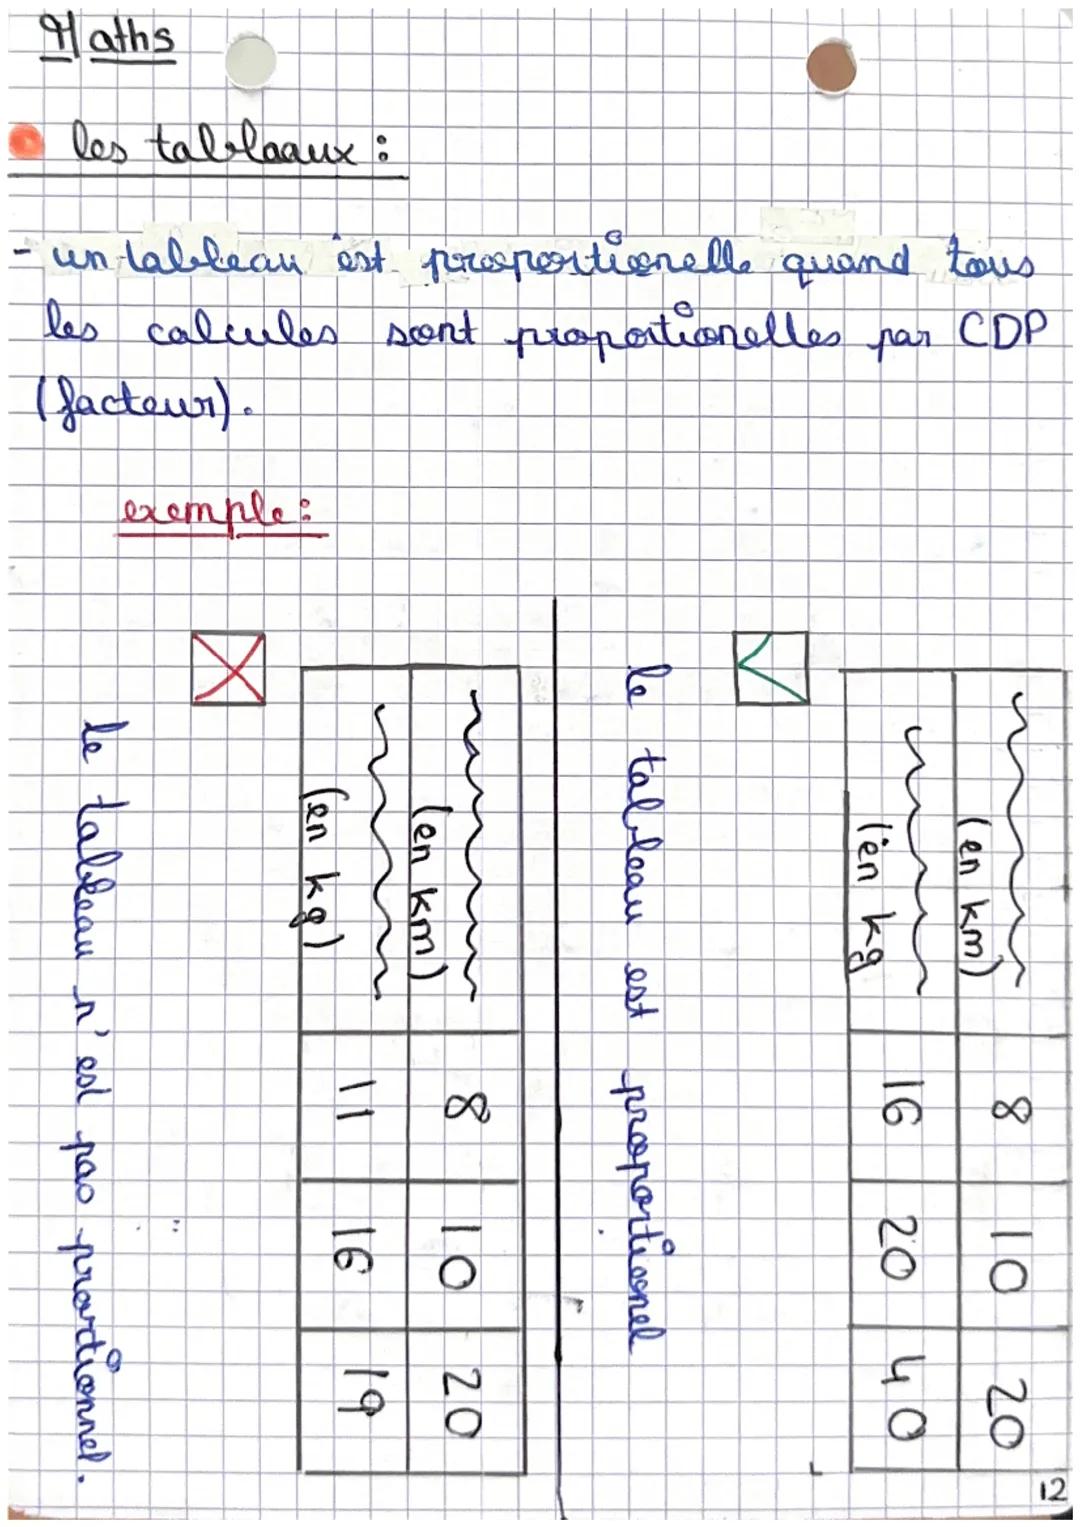 Maths
les tablaaux :
- un tableau est proportionelle quand tous
les calcules sont proportionelles par CDP
(facteur).
exemple :
(en km) 8 10 20
(en kg 16 20 40
le tableau est proportionnel
(en km) 8 10 20
(en kg) 11 16 19
le tableau n'est pas prortionnel.
12